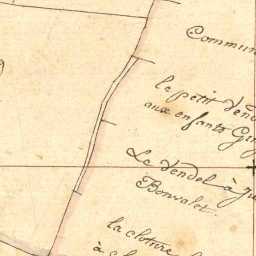 Commun
le petit Vend
aux enfants Gu
Le Vendel à Ju
Bonvalet
la cloture
à